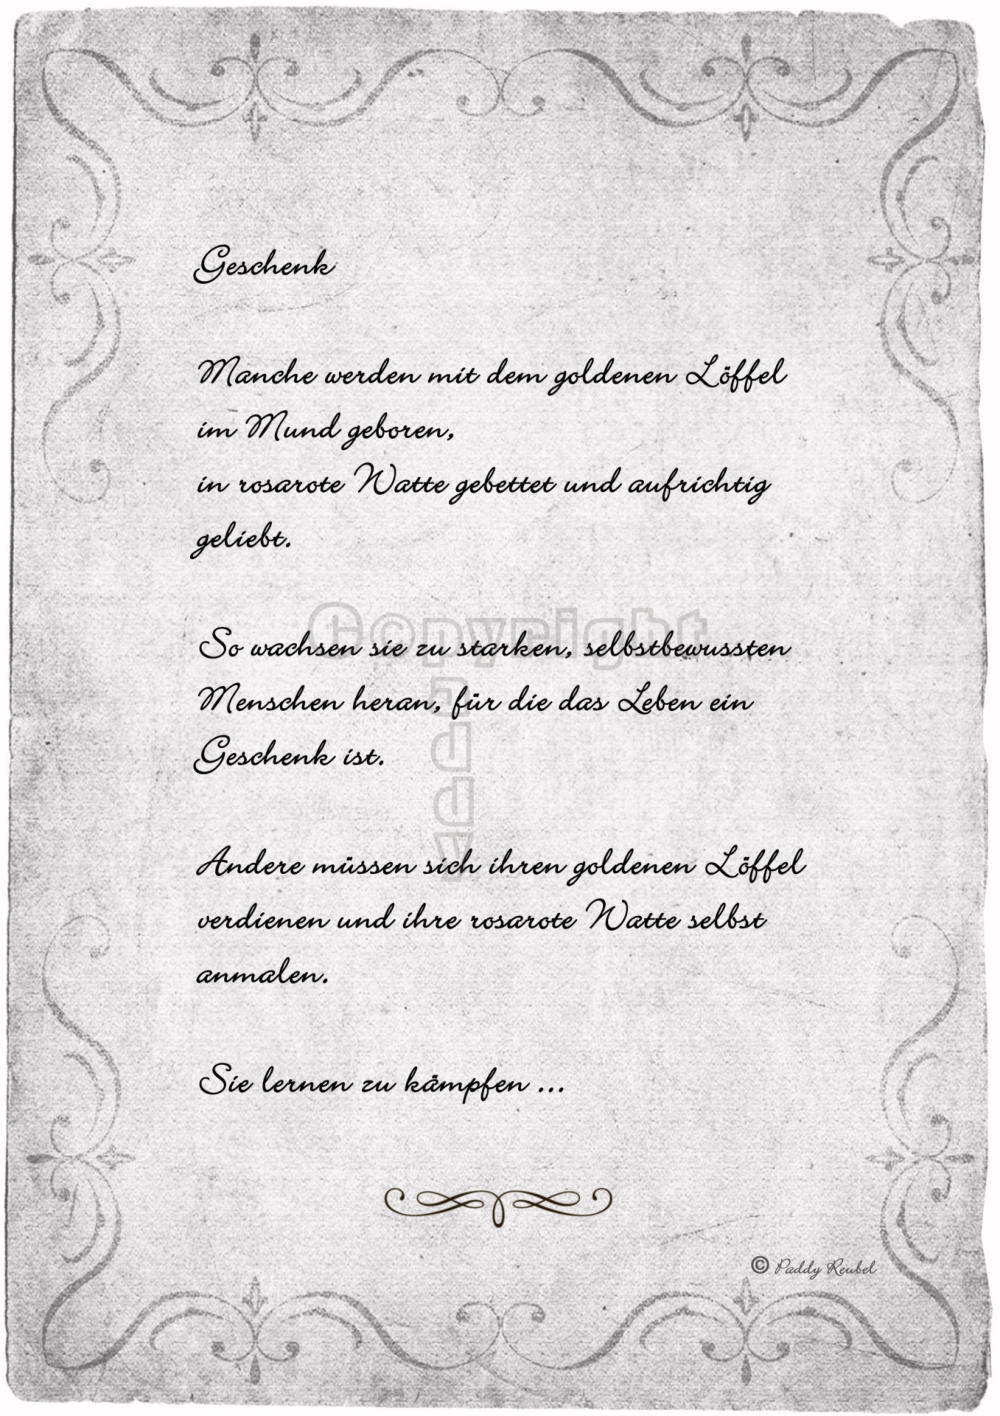 Geschenk
Manche werden mit dem goldenen Löffel
im Mund geboren,
in rosarote Watte gebettet und aufrichtig
geliebt.
So wachsen sie zu starken, selbstbewussten
Menschen heran, für die das Leben ein
Geschenk ist.
Andere müssen sich ihren goldenen Löffel
verdienen und ihre rosarote Watte selbst
anmalen.
Sie lernen zu kämpfen ...
© Paddy Reubel
Copyright